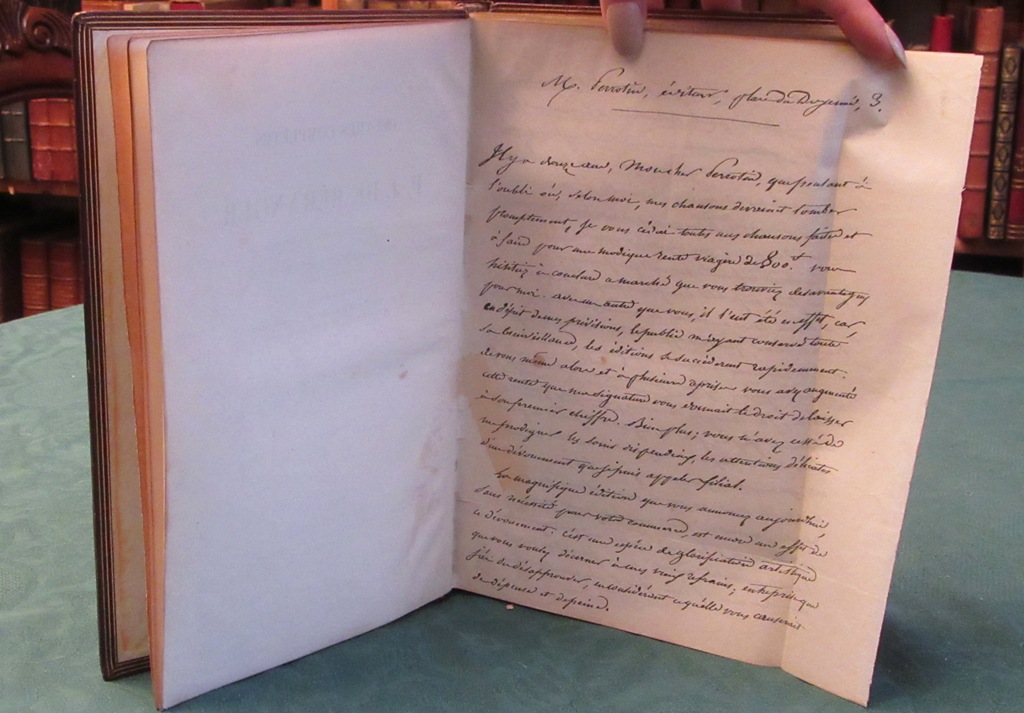 M. Perrotin, éditeur, place du Doyenné, 3.
Il y a douze ans, Mon cher Perrotin, que pensant à
l'oubli où, selon moi, mes chansons devraient tomber
promptement, je vous cédai toutes mes chansons faites et
à faire pour une modique rente viagère de 800 f. vous
hésitiez à conclure ce marché que vous trouviez désavantageux
pour moi. avec un autre que vous, il l'eut été en effet, car
en dépit de mes prévisions, le public m'ayant conservé toute
sa bienveillance, les éditions se succédèrent rapidement.
de vous même alors et à plusieurs reprises vous avez augmenté
cette rente que ma signature vous donnait le droit de laisser
à son premier chiffre. Bien plus; vous n'avez cessé de
me prodiguer les soins dispendieux, les attentions délicates
d'un dévouement que je puis appeler filial.
La magnifique édition que vous annoncez aujourd'hui,
sans nécessité pour votre commerce, est encore un effet de
ce dévouement. c'est une espèce de glorification artistique
que vous voulez décerner à mes vieux refrains; entreprise que
j'ai dû désapprouver, en considérant ce qu'elle vous causerait
de dépense et de peine.